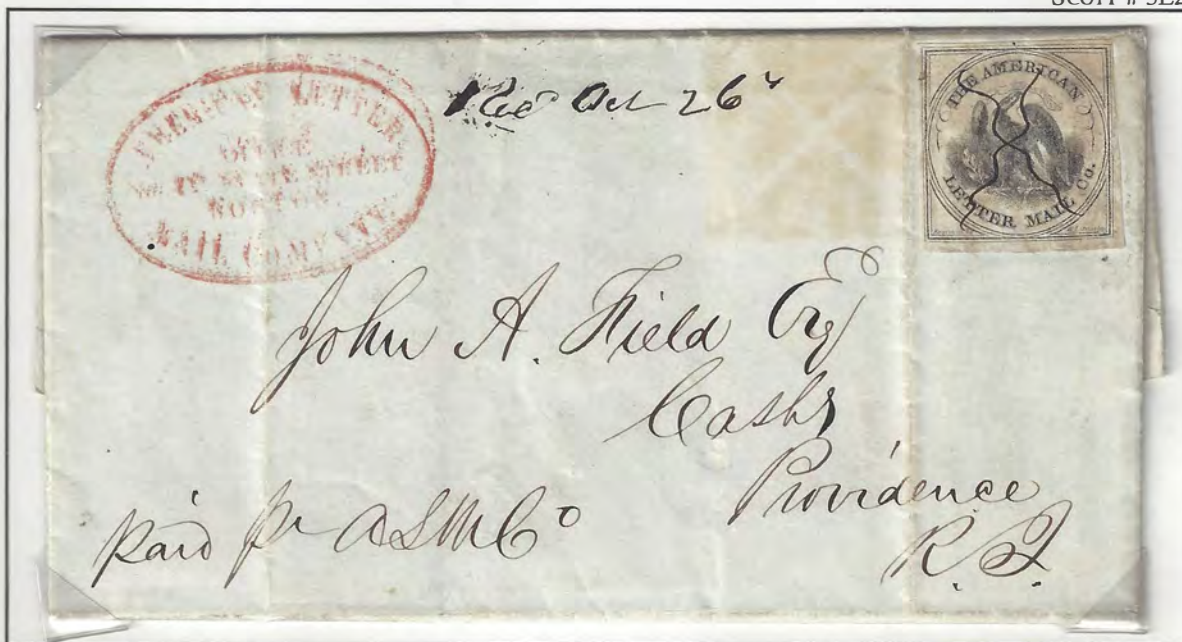 AMERICAN LETTER
OFFICE
STATE STREET
BOSTON
MAIL COMPANY.
Oct 26
THE AMERICAN
LETTER MAIL Co.
John A. Field Esq
Cashr
Providence
R. I.
Paid pr A L M Co